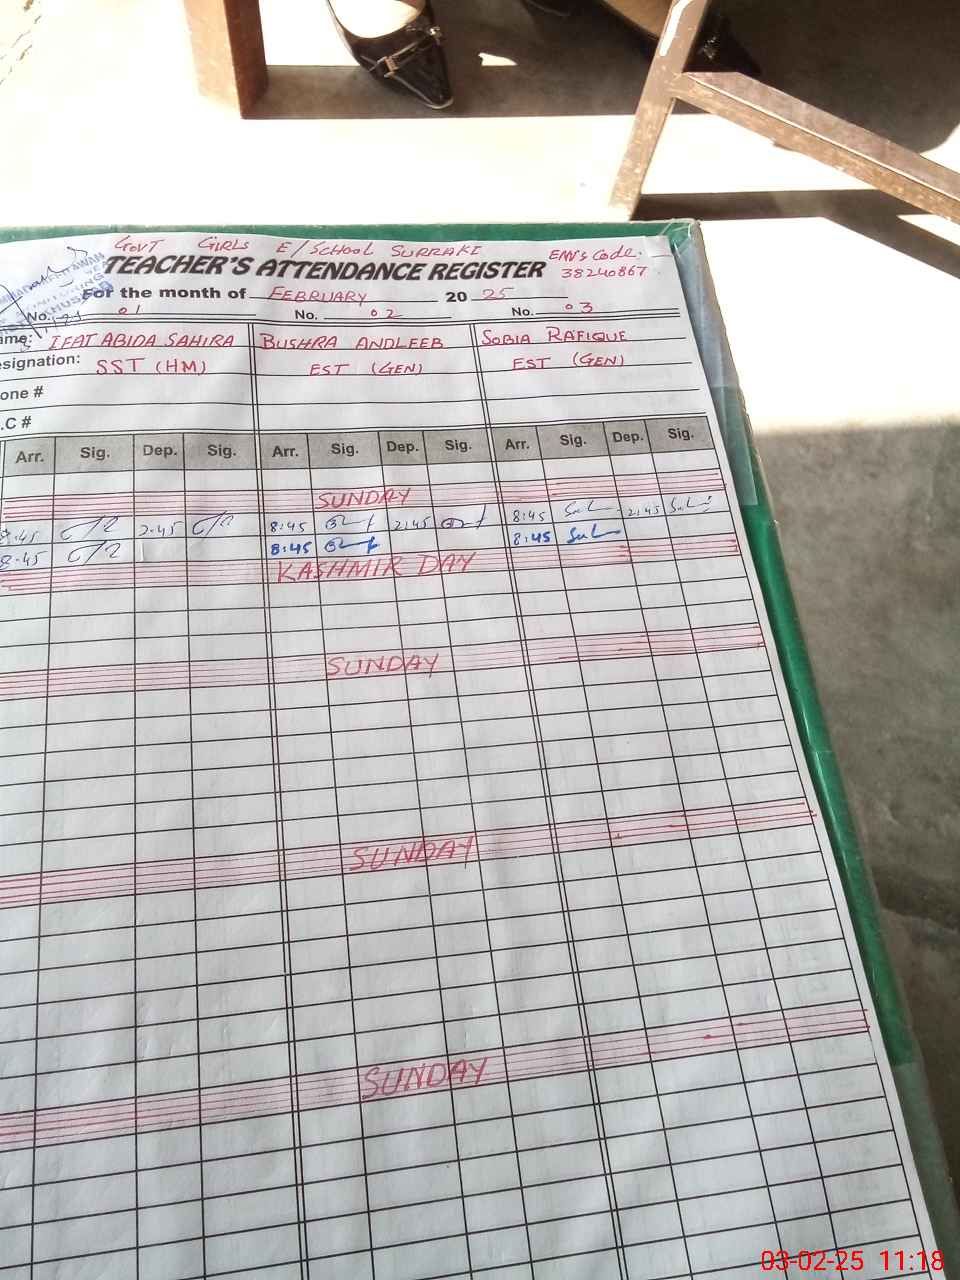 GOVT GIRLS E/SCHOOL SURRAKI
EMIS Code.
38240867
TEACHER'S ATTENDANCE REGISTER
For the month of FEBRUARY 2025
No. 01 No. 02 No. 03
ame: IFAT ABIDA SAHIRA BUSHRA ANDLEEB SOBIA RAFIQUE
esignation: SST (HM) EST (GEN) EST (GEN)
one #
.C #
Arr. Sig. Dep. Sig. Arr. Sig. Dep. Sig. Arr. Sig. Dep. Sig.
SUNDAY
8:45 2:45 8:45 2:45 8:45 2:45
8:45 8:45 8:45
KASHMIR DAY
SUNDAY
SUNDAY
SUNDAY
03-02-25 11:18